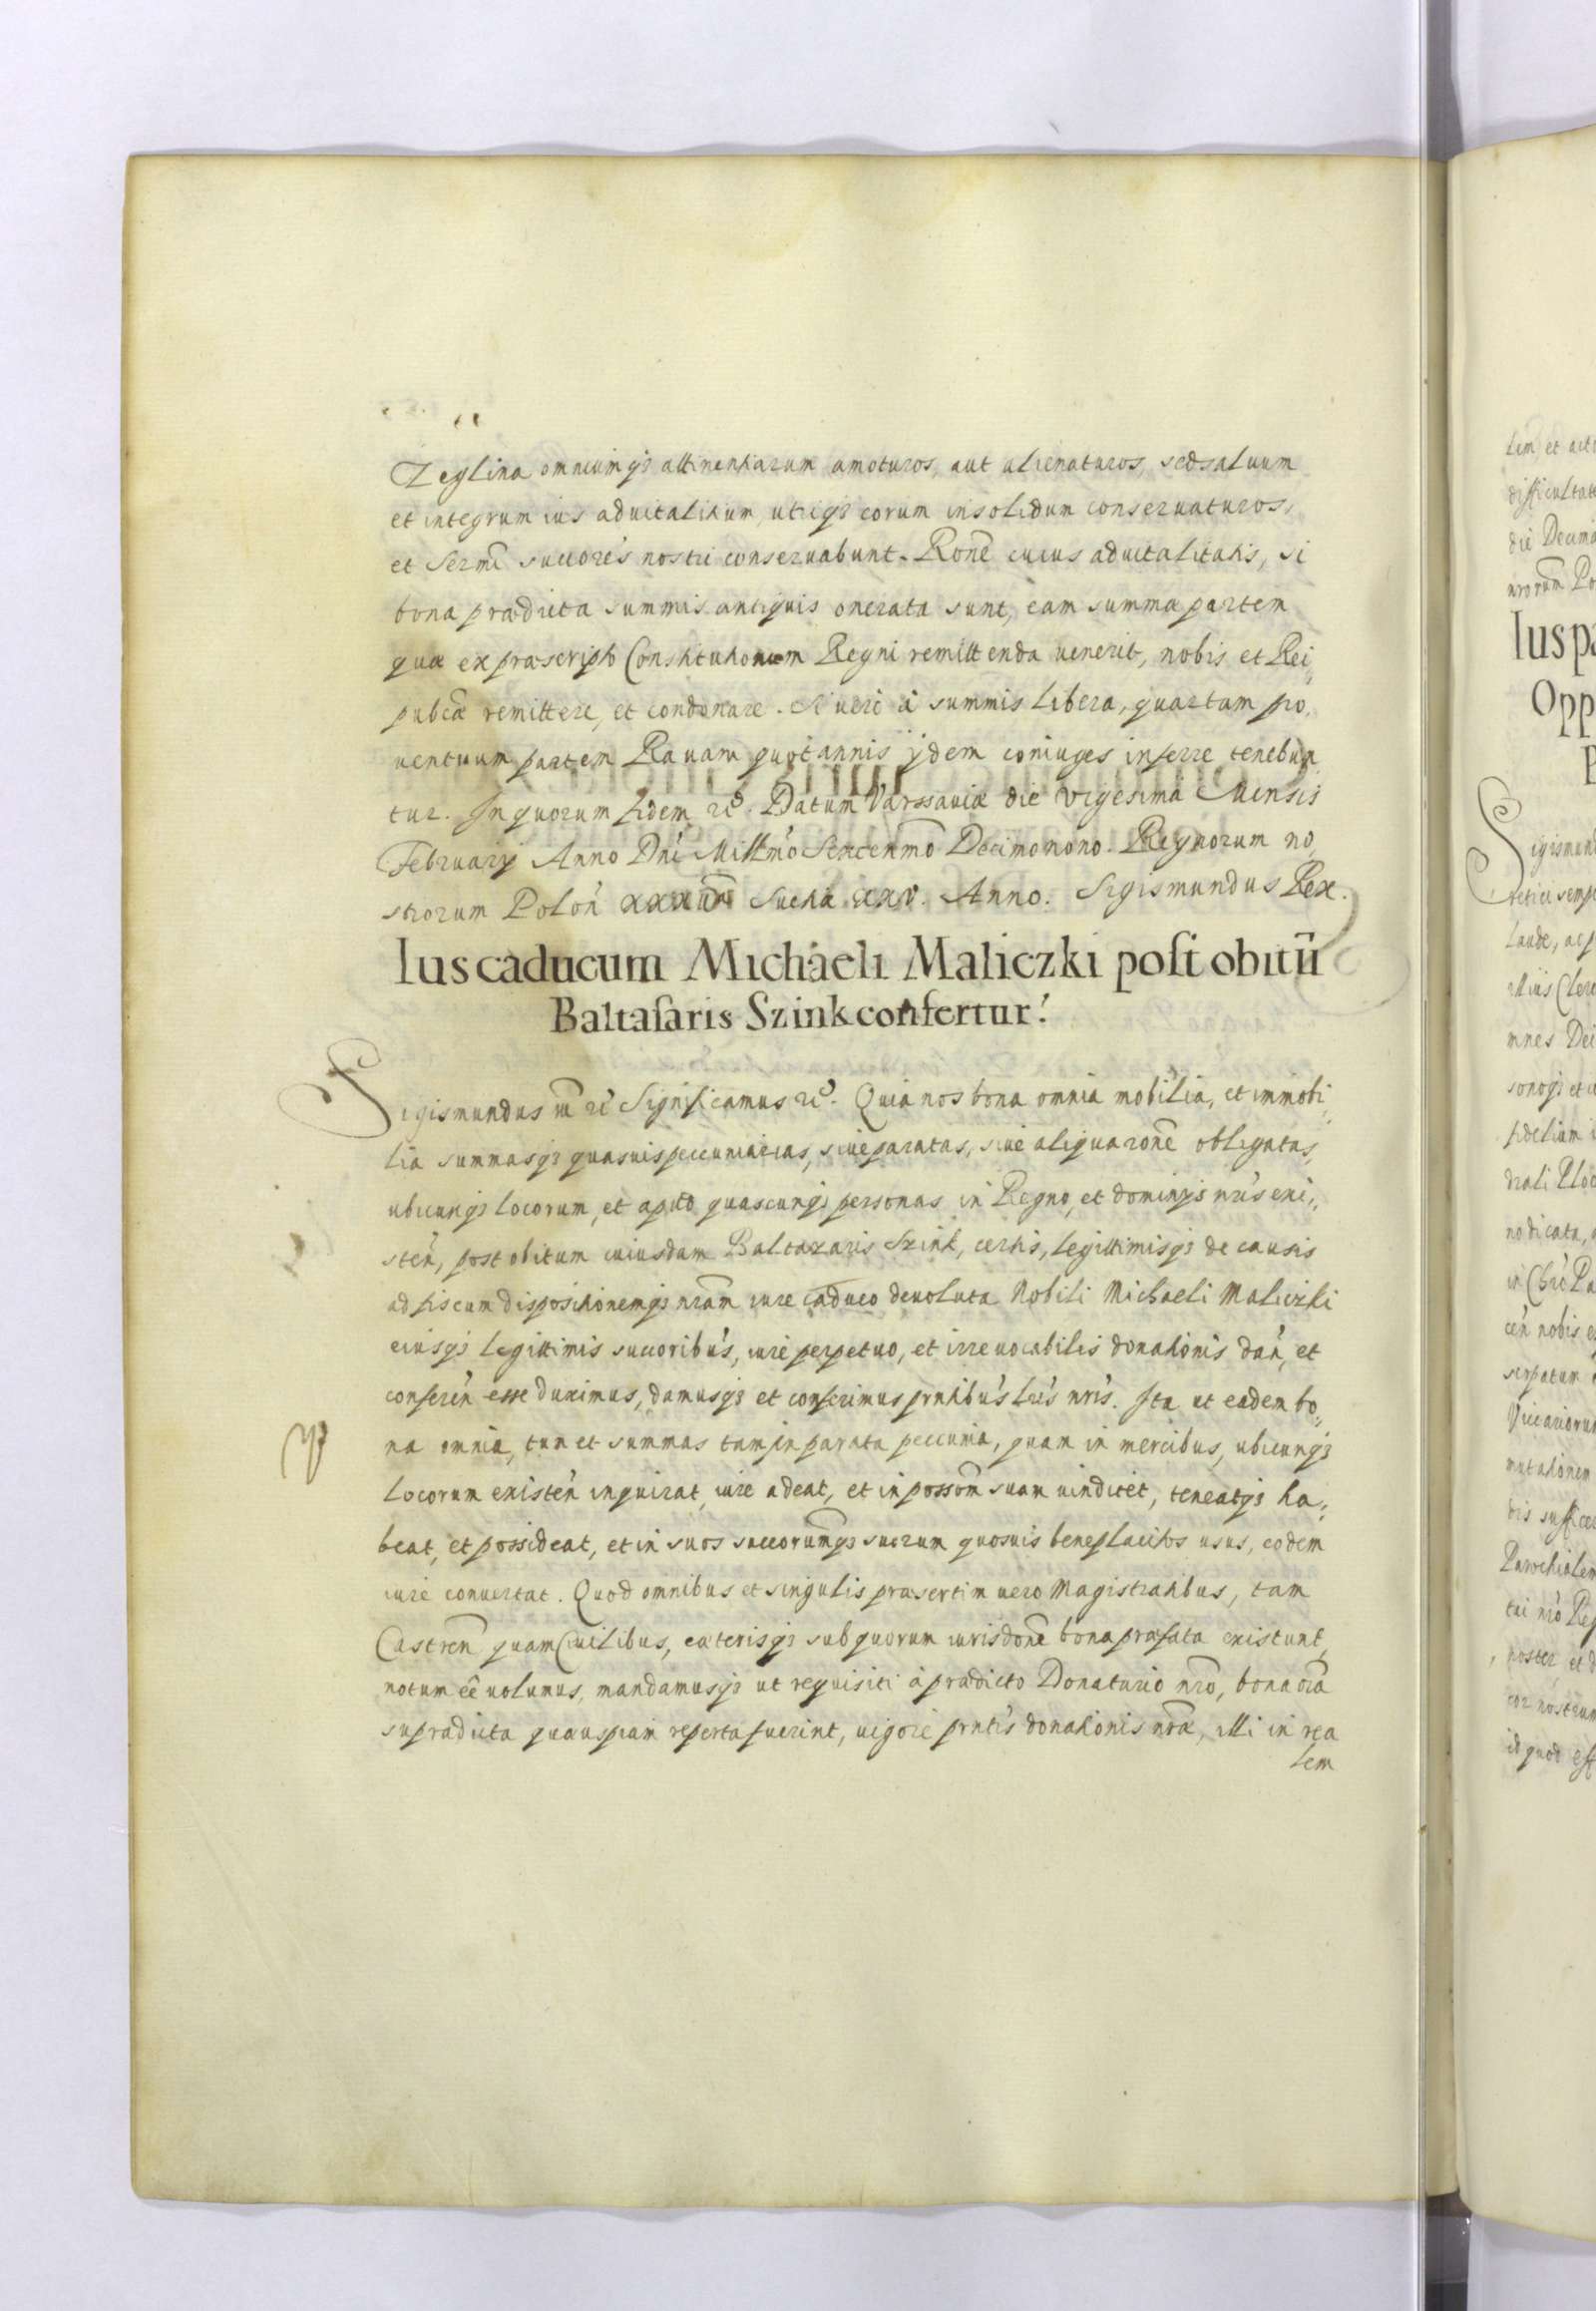 Zeglina omniumqȝ attinentiarum amoturos, aut alienaturos, sed saluum
et integrum ius aduitalitium, utriqȝ eorum in solidum conseruaturos,
et Sermĩ succores nostri conseruabunt. Ronẽ cuius aduitalitatis, si
bona prædicta summis antiquis onerata sunt, eam summæ partem
quæ ex præscripto Constitutionum Regni remittenda uenerit, nobis et Rei,,
pubcæ remittere, et condonare. Si uero à summis libera, quartam pro,,
uentuum partem Rauam quotannis ijdem coniuges inferre tenebun,,
tur. In quorum fidem rc̃. Datum Varssauiæ die vigesima Mensis
Februarij Anno Dni Millmo Sexcenmo Decimonono. Regnorum no,,
strorum Polon̄ Sueciæ xxv. Anno. Sigismundus Rex.
Ius caducum Michaeli Maliczki post obitũ
Baltasaris Szink confertur.
Sigismundus rc̃ Significamus rc̃. Quia nos bona omnia mobilia, et immobi,,
lia summasqȝ quasuis peccuniarias, siue paratas, siue aliqua ronẽ obligatas,
ubicunqȝ locorum, et apud quascunqȝ personas in Regno, et dominijs nr̃is exi,,
sten̄, post obitum cuiusdam Baltazaris Szink, certis, legittimisqȝ de causis
ad fiscum dispositionemqȝ nr̃am iure caduco deuoluta Nobili Michaeli Maliczki
eiusqȝ legittimis succoribus, iure perpetuo, et irreuocabilis donationis dan̄, et
conferen̄ esse duximus, damusqȝ et conferimus prntibus lr̃is nr̃is. Ita ut eadem bo,,
na omnia, tum et summas tam in parata peccunia, quam in mercibus, ubicunqȝ
locorum existen̄ inquirat, iure adeat, et in possom̃ suam uindicet, teneatqȝ ha,,
beat, et possideat, et in suos succorumqȝ suorum quosuis beneplacitos usus, eodem
iure conuertat. Quod omnibus et singulis præsertim uero Magistratibus, tam
Castren̄ quam Ciuilibus, cæterisqȝ sub quorum iurisdonẽ bona præfata existunt,
notum eẽ uolumus, mandamusqȝ ut requisiti à prædicto Donatario nr̃o, bona oĩa
supradicta quæuspiam reperta fuerint, uigore prntis donationis nr̃æ, illi in rea
lem